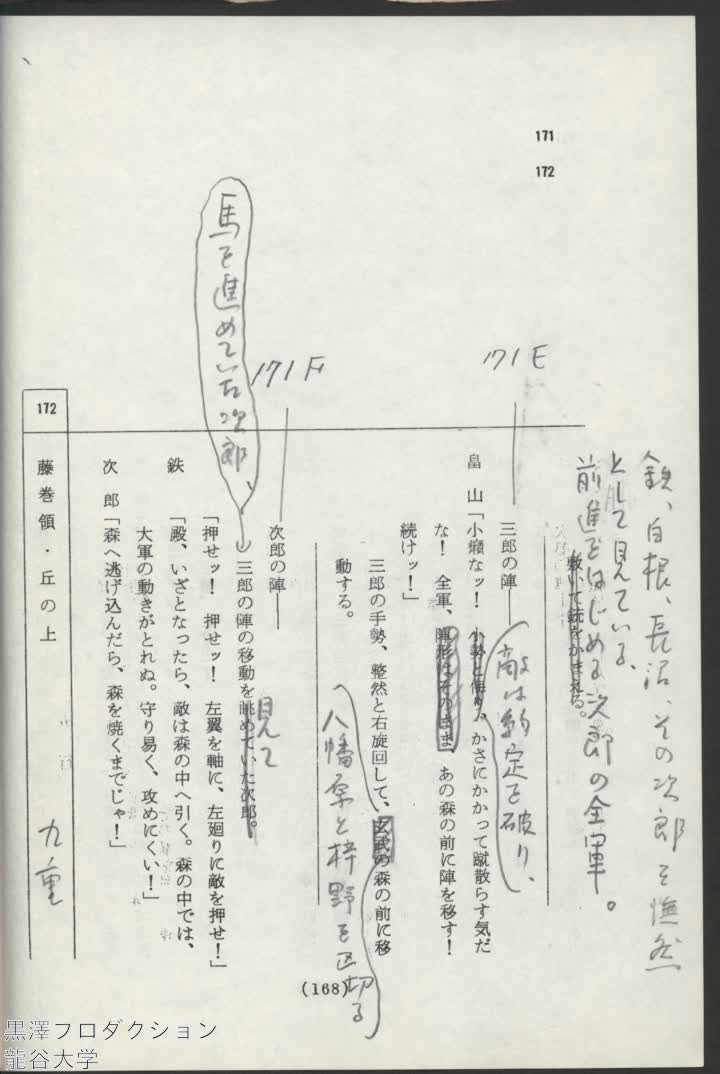 171
172
鉄、白根、長沼、その次郎を憮然
として見ている。
前進をはじめる次郎の全軍。
敷いて銃をかまえる。
171E
三郎の陣――
敵は約定を破り、
畠 山「小癪なッ! 小勢と侮り、かさにかかって蹴散らす気だ
な! 全軍、陣形はそのまま、あの森の前に陣を移す!
続けッ!」
三郎の手勢、整然と右旋回して、玄武の森の前に移
動する。
八幡原と梓野を区切る
171F
次郎の陣――
馬を進めていた次郎、
三郎の陣の移動を眺めていた次郎。
見て
「押せッ! 押せッ! 左翼を軸に、左廻りに敵を押せ!」
鉄 「殿、いざとなったら、敵は森の中へ引く。森の中では、
大軍の動きがとれぬ。守り易く、攻めにくい!」
次 郎「森へ逃げ込んだら、森を焼くまでじゃ!」
172
藤巻領・丘の上
九重
(168)
黒澤プロダクション
龍谷大学